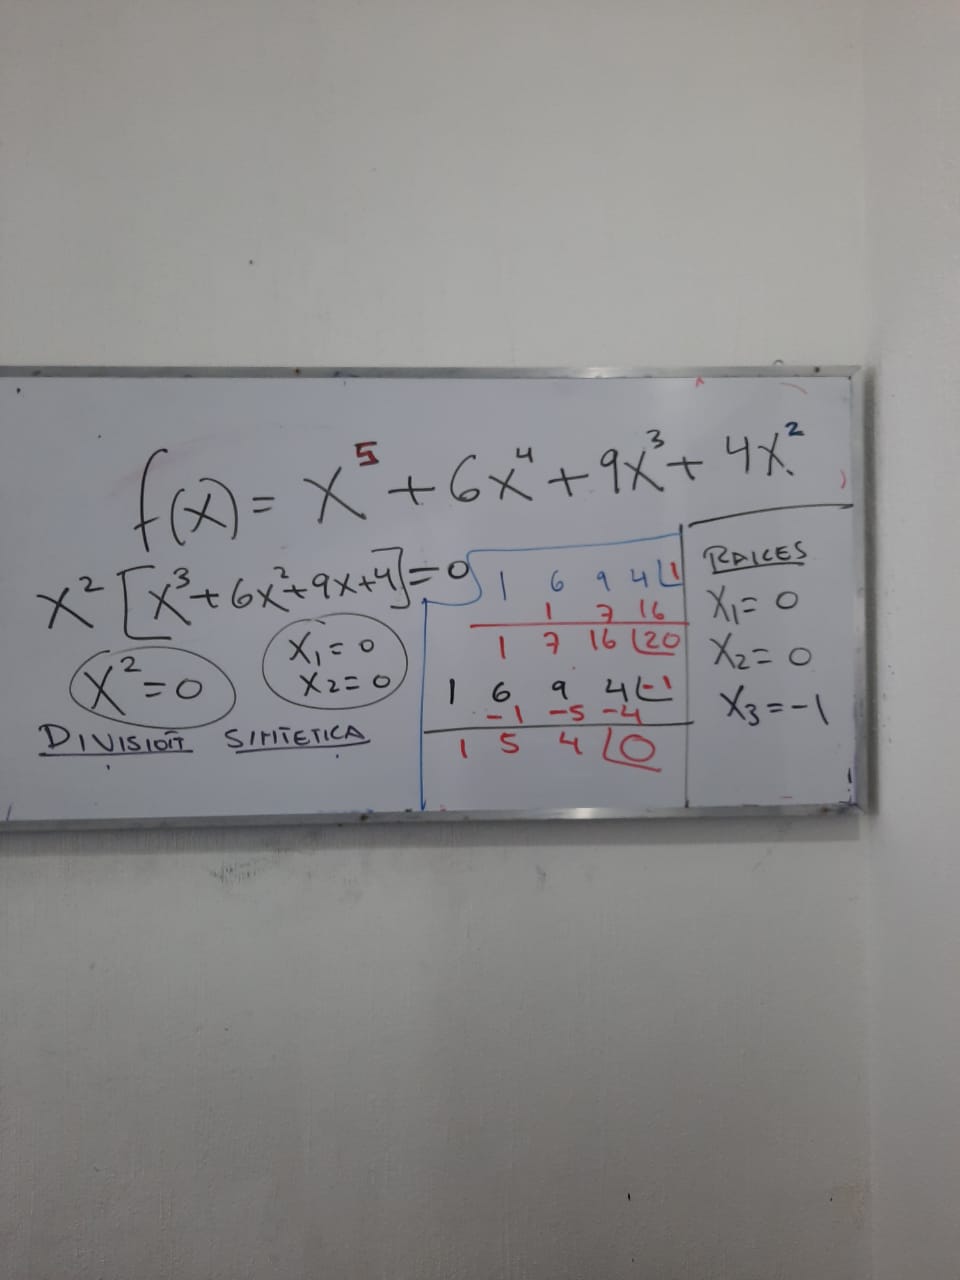 f(x) = x⁵ + 6x⁴ + 9x³ + 4x²
x² [x³ + 6x² + 9x + 4] = 0
x² = 0
x₁ = 0
x₂ = 0
DIVISIOT SINTETICA
1 6 9 4 |1
1 7 16
1 7 16 |20
1 6 9 4 |-1
-1 -5 -4
1 5 4 |0
RAICES
x₁ = 0
x₂ = 0
x₃ = -1